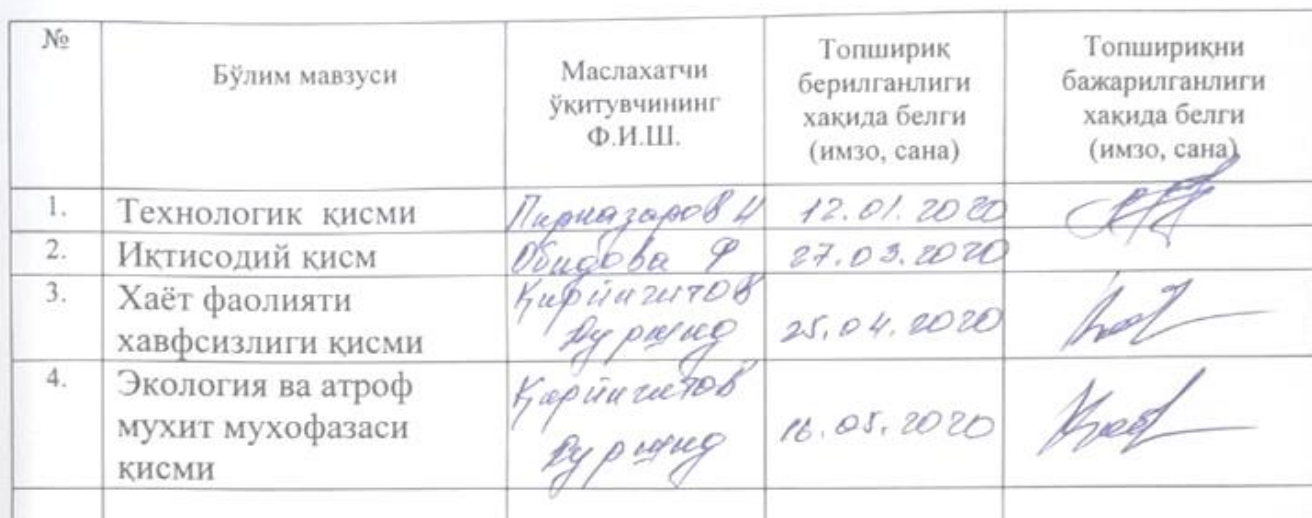 №
Бўлим мавзуси
Маслахатчи
ўқитувчининг
Ф.И.Ш.
Топшириқ
берилганлиги
хақида белги
(имзо, сана)
Топшириқни
бажарилганлиги
хақида белги
(имзо, сана)
1.
Технологик қисми
Пирназаров И
12.01.2020
2.
Иқтисодий қисм
Обидова Ф
27.03.2020
3.
Хаёт фаолияти
хавфсизлиги қисми
25.04.2020
4.
Экология ва атроф
мухит мухофазаси
қисми
16.05.2020